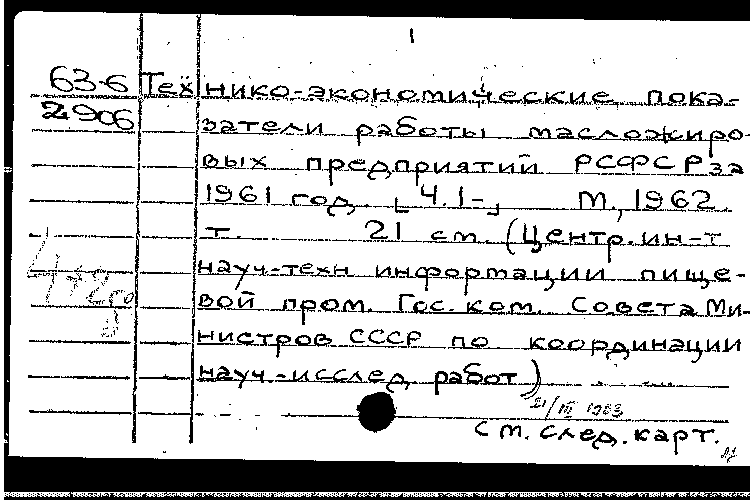 1
63-6 Технико-экономические пока-
2906 затели работы масложиро-
вых предприятий РСФСР за
1961 год. [Ч. 1- ] М., 1962.
т. 21 см. (Центр. ин-т
науч-техн информации пище-
вой пром. Гос. ком. Совета Ми-
нистров СССР по координации
науч.-исслед. работ)
21/III 1963
см. след. карт.